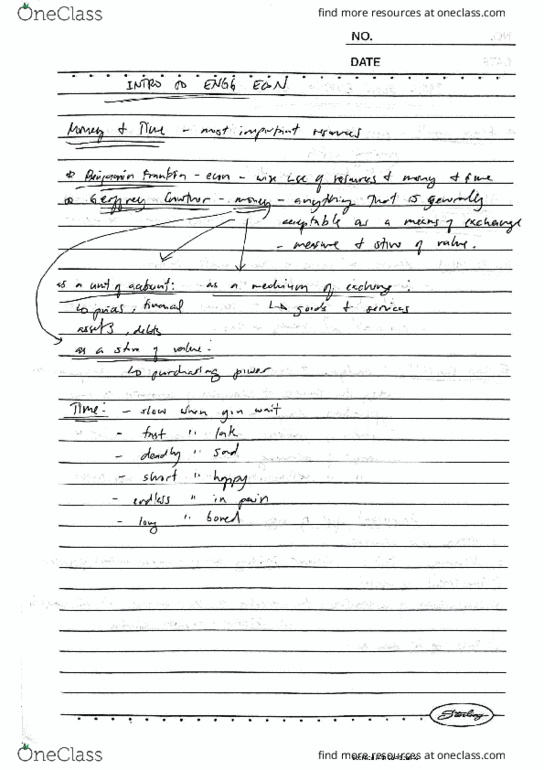 OneClass
find more resources at oneclass.com
NO.
DATE
INTRO TO ENGG ECON
Money & Time - most important resources
Benjamin Franklin - econ - wise use of resources & money & time
Geffrey Crowther - money - anything that is generally
acceptable as a means of exchange
- measure & store of value.
as a unit of account: as a medium of exchange:
↳ prices, financial ↳ goods & services
assets, debts
as a store of value:
↳ purchasing power
Time: - slow when you wait
- fast " late
- deadly " sad
- short " happy
- endless " in pain
- long " bored
Sterling
OneClass
find more resources at oneclass.com